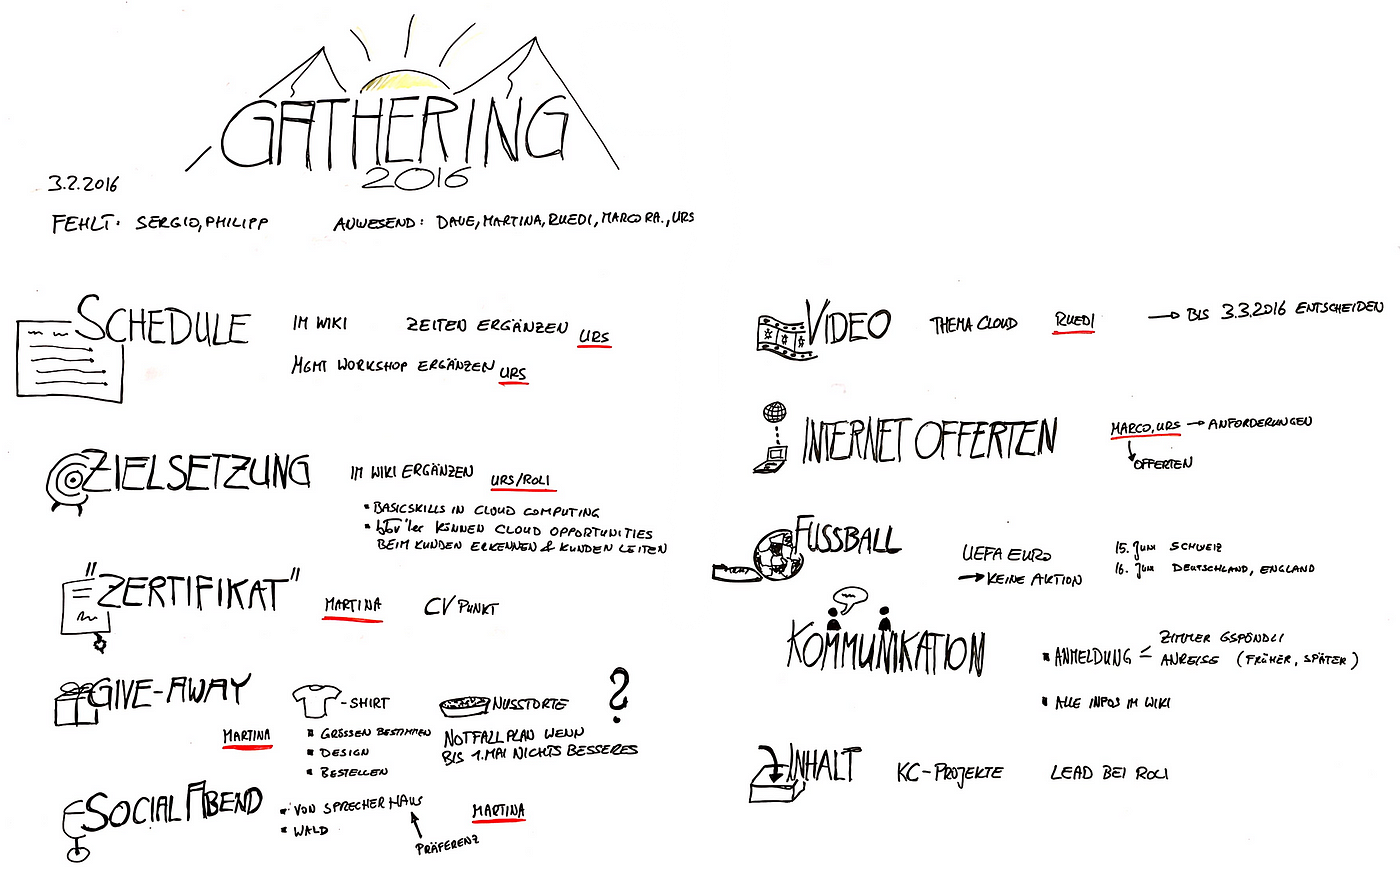 GATHERING
2016
3.2.2016
FEHLT: SERGIO, PHILIPP
ANWESEND: DAVE, MARTINA, RUEDI, MARCO RA., URS
SCHEDULE
IM WIKI ZEITEN ERGÄNZEN URS
MGMT WORKSHOP ERGÄNZEN URS
ZIELSETZUNG
IM WIKI ERGÄNZEN URS/ROLI
▪ BASICSKILLS IN CLOUD COMPUTING
▪ KÖNNEN CLOUD OPPORTUNITIES
BEIM KUNDEN ERKENNEN & KUNDEN LEITEN
"ZERTIFIKAT"
MARTINA CV PUNKT
GIVE-AWAY
MARTINA
-SHIRT
▪ GRÖSSEN BESTIMMEN
▪ DESIGN
▪ BESTELLEN
NUSSTORTE ?
NOTFALLPLAN WENN
BIS 1. MAI NICHTS BESSERES
SOCIAL ABEND
▪ VON SPRECHER HAUS
▪ WALD
PRÄFERENZ
MARTINA
VIDEO
THEMA CLOUD RUEDI → BIS 3.3.2016 ENTSCHEIDEN
INTERNET OFFERTEN
MARCO, URS → ANFORDERUNGEN
↓ OFFERTEN
FUSSBALL
UEFA EURO
→ KEINE AKTION
15. Juni SCHWEIZ
16. Juni DEUTSCHLAND, ENGLAND
KOMMUNIKATION
▪ ANMELDUNG ZIMMER GSPÖNDLI
ANREISE (FRÜHER, SPÄTER)
▪ ALLE INFOS IM WIKI
INHALT
KC-PROJEKTE LEAD BEI ROLI